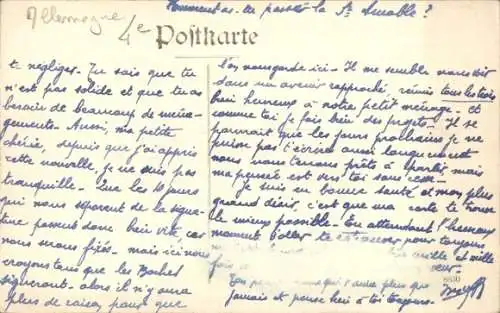 Allemagne
Comment as-tu passé la St Amable ?
4e
Postkarte
te négliges. Tu sais que tu
n'est pas solide et que tu as
besoin de beaucoup de ména-
gements. Aussi, ma petite
chérie, depuis que j'ai appris
cette nouvelle, je ne suis pas
tranquille. Que les 10 jours
qui nous séparent de la signa-
ture passent donc bien vite, car
nous serons fixés. mais ici nous
croyons tous que les Boches
signeront. alors il n'y aura
plus de raison pour que
l'on nous garde ici. Il me semble nous voir
dans un avenir rapproché, réunis tous les trois
bien heureux à notre petit ménage. et
comme toi je fais bien des projets. Il se
pourrait que les jours prochains je ne
puisse pas t'écrire aussi longuement
nous nous tenons prêts à partir, mais
ma pensée est vers toi sans cesse.
Je suis en bonne santé et mon plus
grand désir, c'est que ma carte te trouve
le mieux possible. En attendant l'heureux
moment d'aller te retrouver pour toujours
mille et mille
fois
qui t'aime plus que
jamais et pense bien à toi toujours.